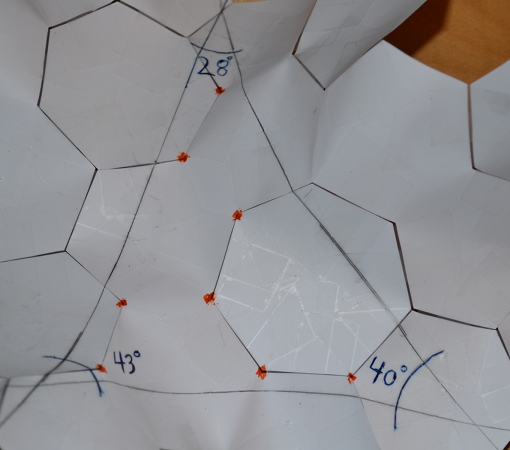 28°
43°
40°